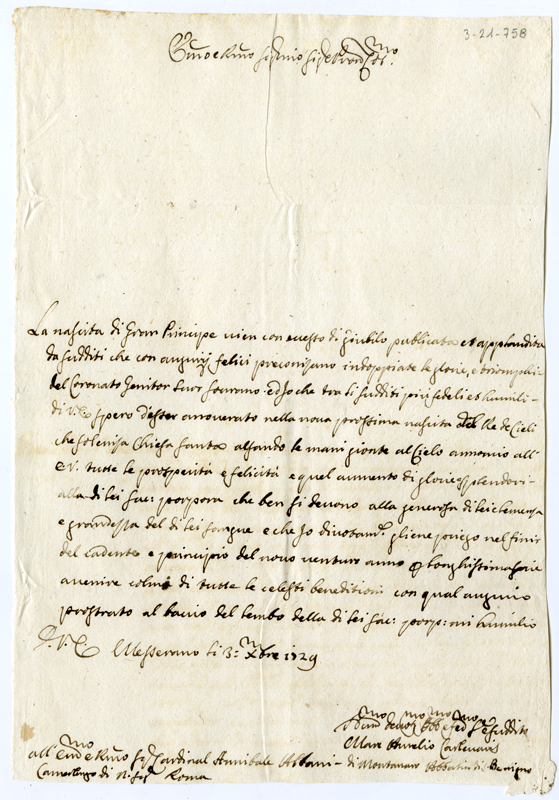 3-21-758
Em.o e R.mo Sig.r mio Sig.r e Pron Col.mo
La nascita di Gran Principe vien con eccesso di giubilo publicata et applaudita
da sudditi che con augurij felici preconizano indoppiate le glorie, e triomphi
del Coronato Genitor suor sourano. ed Jo che tra li sudditi piu fedeli et humili
di V.E. spero d'esser annoverato nella nova prossima nascita del Re de Cieli
che solenisa Chiesa Santa alsando le mani gionte al Cielo annuncio all'
E.V. tutte le prosperità e felicità e qual aumento di glorie e splendori
alla di lei sac: porpora che ben si devono alla generosa di lei clemensa
e grandessa del di lei sangue e che Jo divotam.te gliene priego nel finir
del cadente e principio del novo venturo anno p longhissima serie
avenire colmi di tutte le celesti beneditioni con qual augurio
prostrato al baccio del lembo della di lei sac: porp: mi humilio
D.V.E. Messerano li 3: Xbre 1729
Hum.mo devot.mo obb.mo e fed.mo Ser.e e suddito
Marc Aurelio
di Montanaro Abbatia di S. Benigno
all' Em.mo e R.mo Sig.r Cardinal Annibale Albani
Camerlengo di N. Sig.re Roma